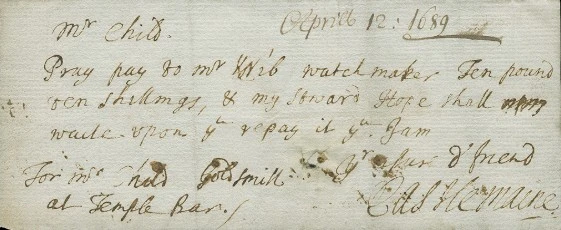 Aprill 12: 1689
Mr Child.
Pray pay to mr Web watchmaker Ten pound
ten shillings, & my steward Hope shall
waite upon yu repay it yu. I am
yr assured friend
For mr Child Goldsmith
at Temple Bar./
Castlemaine